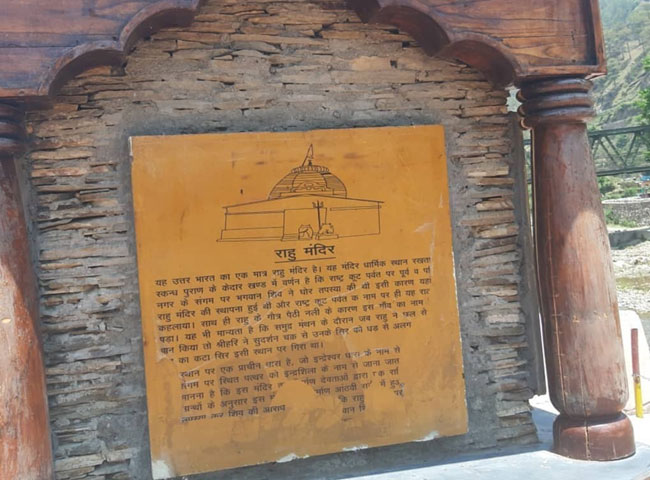 राहु मंदिर
यह उत्तर भारत का एक मात्र राहु मंदिर है। यह मंदिर धार्मिक स्थान रखता
स्कन्ध पुराण के केदार खण्ड में वर्णन है कि राष्ट्र कूट पर्वत पर पूर्व व
नगर के संगम पर भगवान शिव ने घोर तपस्या की थी इसी कारण यहां
राहु मंदिर की स्थापना हुई थी और राष्ट्र कूट पर्वत के नाम पर ही यह
कहलाया। साथ ही राहु के गौत्र पैठी नसी के कारण इस गाँव का नाम
पड़ा। यह भी मान्यता है कि समुद्र मंथन के दौरान जब राहु ने छल से
पान किया तो श्रीहरि ने सुदर्शन चक्र से उनके सिर को धड़ से अलग
का कटा सिर इसी स्थान पर गिरा था।
स्थान पर एक प्राचीन धारा है, जो इन्द्रेश्वर के नाम से
संगम पर स्थित पत्थर को इन्द्रशिला के नाम से जाना जात
मानना है कि इस मंदिर देवताओं द्वारा
ग्रन्थों के अनुसार इस कि राहु
तपस्या कर शिव की